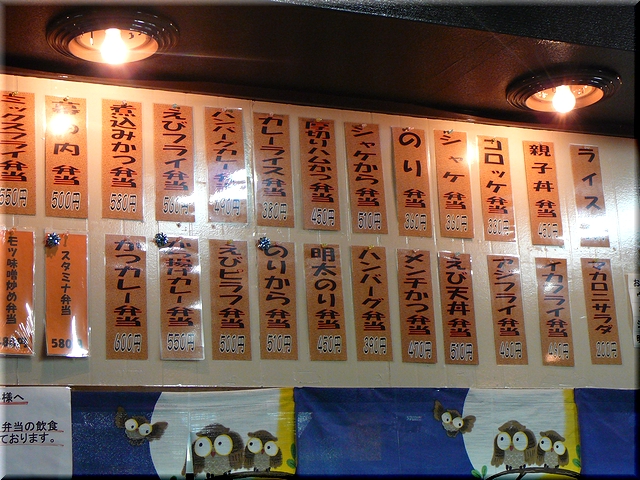 ミックスフライ弁当 550円
幕の内 500円
煮込みかつ弁当 580円
えびフライ弁当
ハンバーグカレー弁当
カレーライス弁当 380円
厚切りハムかつ弁当 450円
シャケかつ弁当 510円
のり弁当 360円
シャケ弁当
コロッケ弁当
親子丼弁当 480円
ライス
モツ味噌炒め弁当
スタミナ弁当 580円
かつカレー弁当 600円
から揚げカレー弁当 550円
えびピラフ弁当 500円
のりから弁当 510円
明太のり弁当 450円
ハンバーグ弁当 390円
メンチかつ弁当 400円
えび天丼弁当 510円
アジフライ弁当 460円
イカフライ弁当
マカロニサラダ 200円
様へ
弁当の飲食
ております。